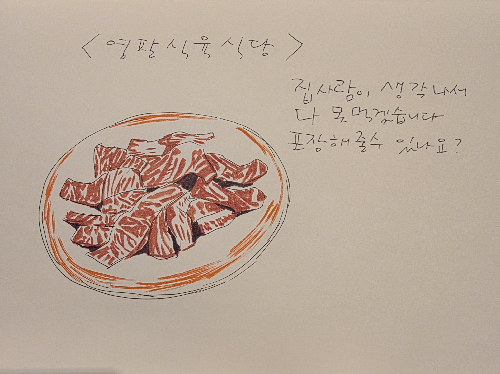 <영팔식육식당>
집사람이 생각나서
다 못먹겠습니다
포장해줄수 있나요?